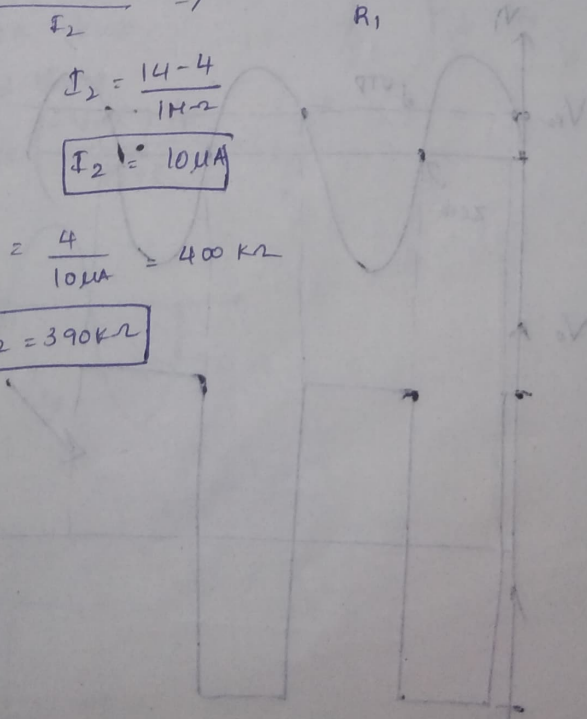 I₂
R₁
I₂ = 14-4 / 1MΩ
I₂ = 10μA
= 4 / 10μA = 400 KΩ
2 = 390KΩ